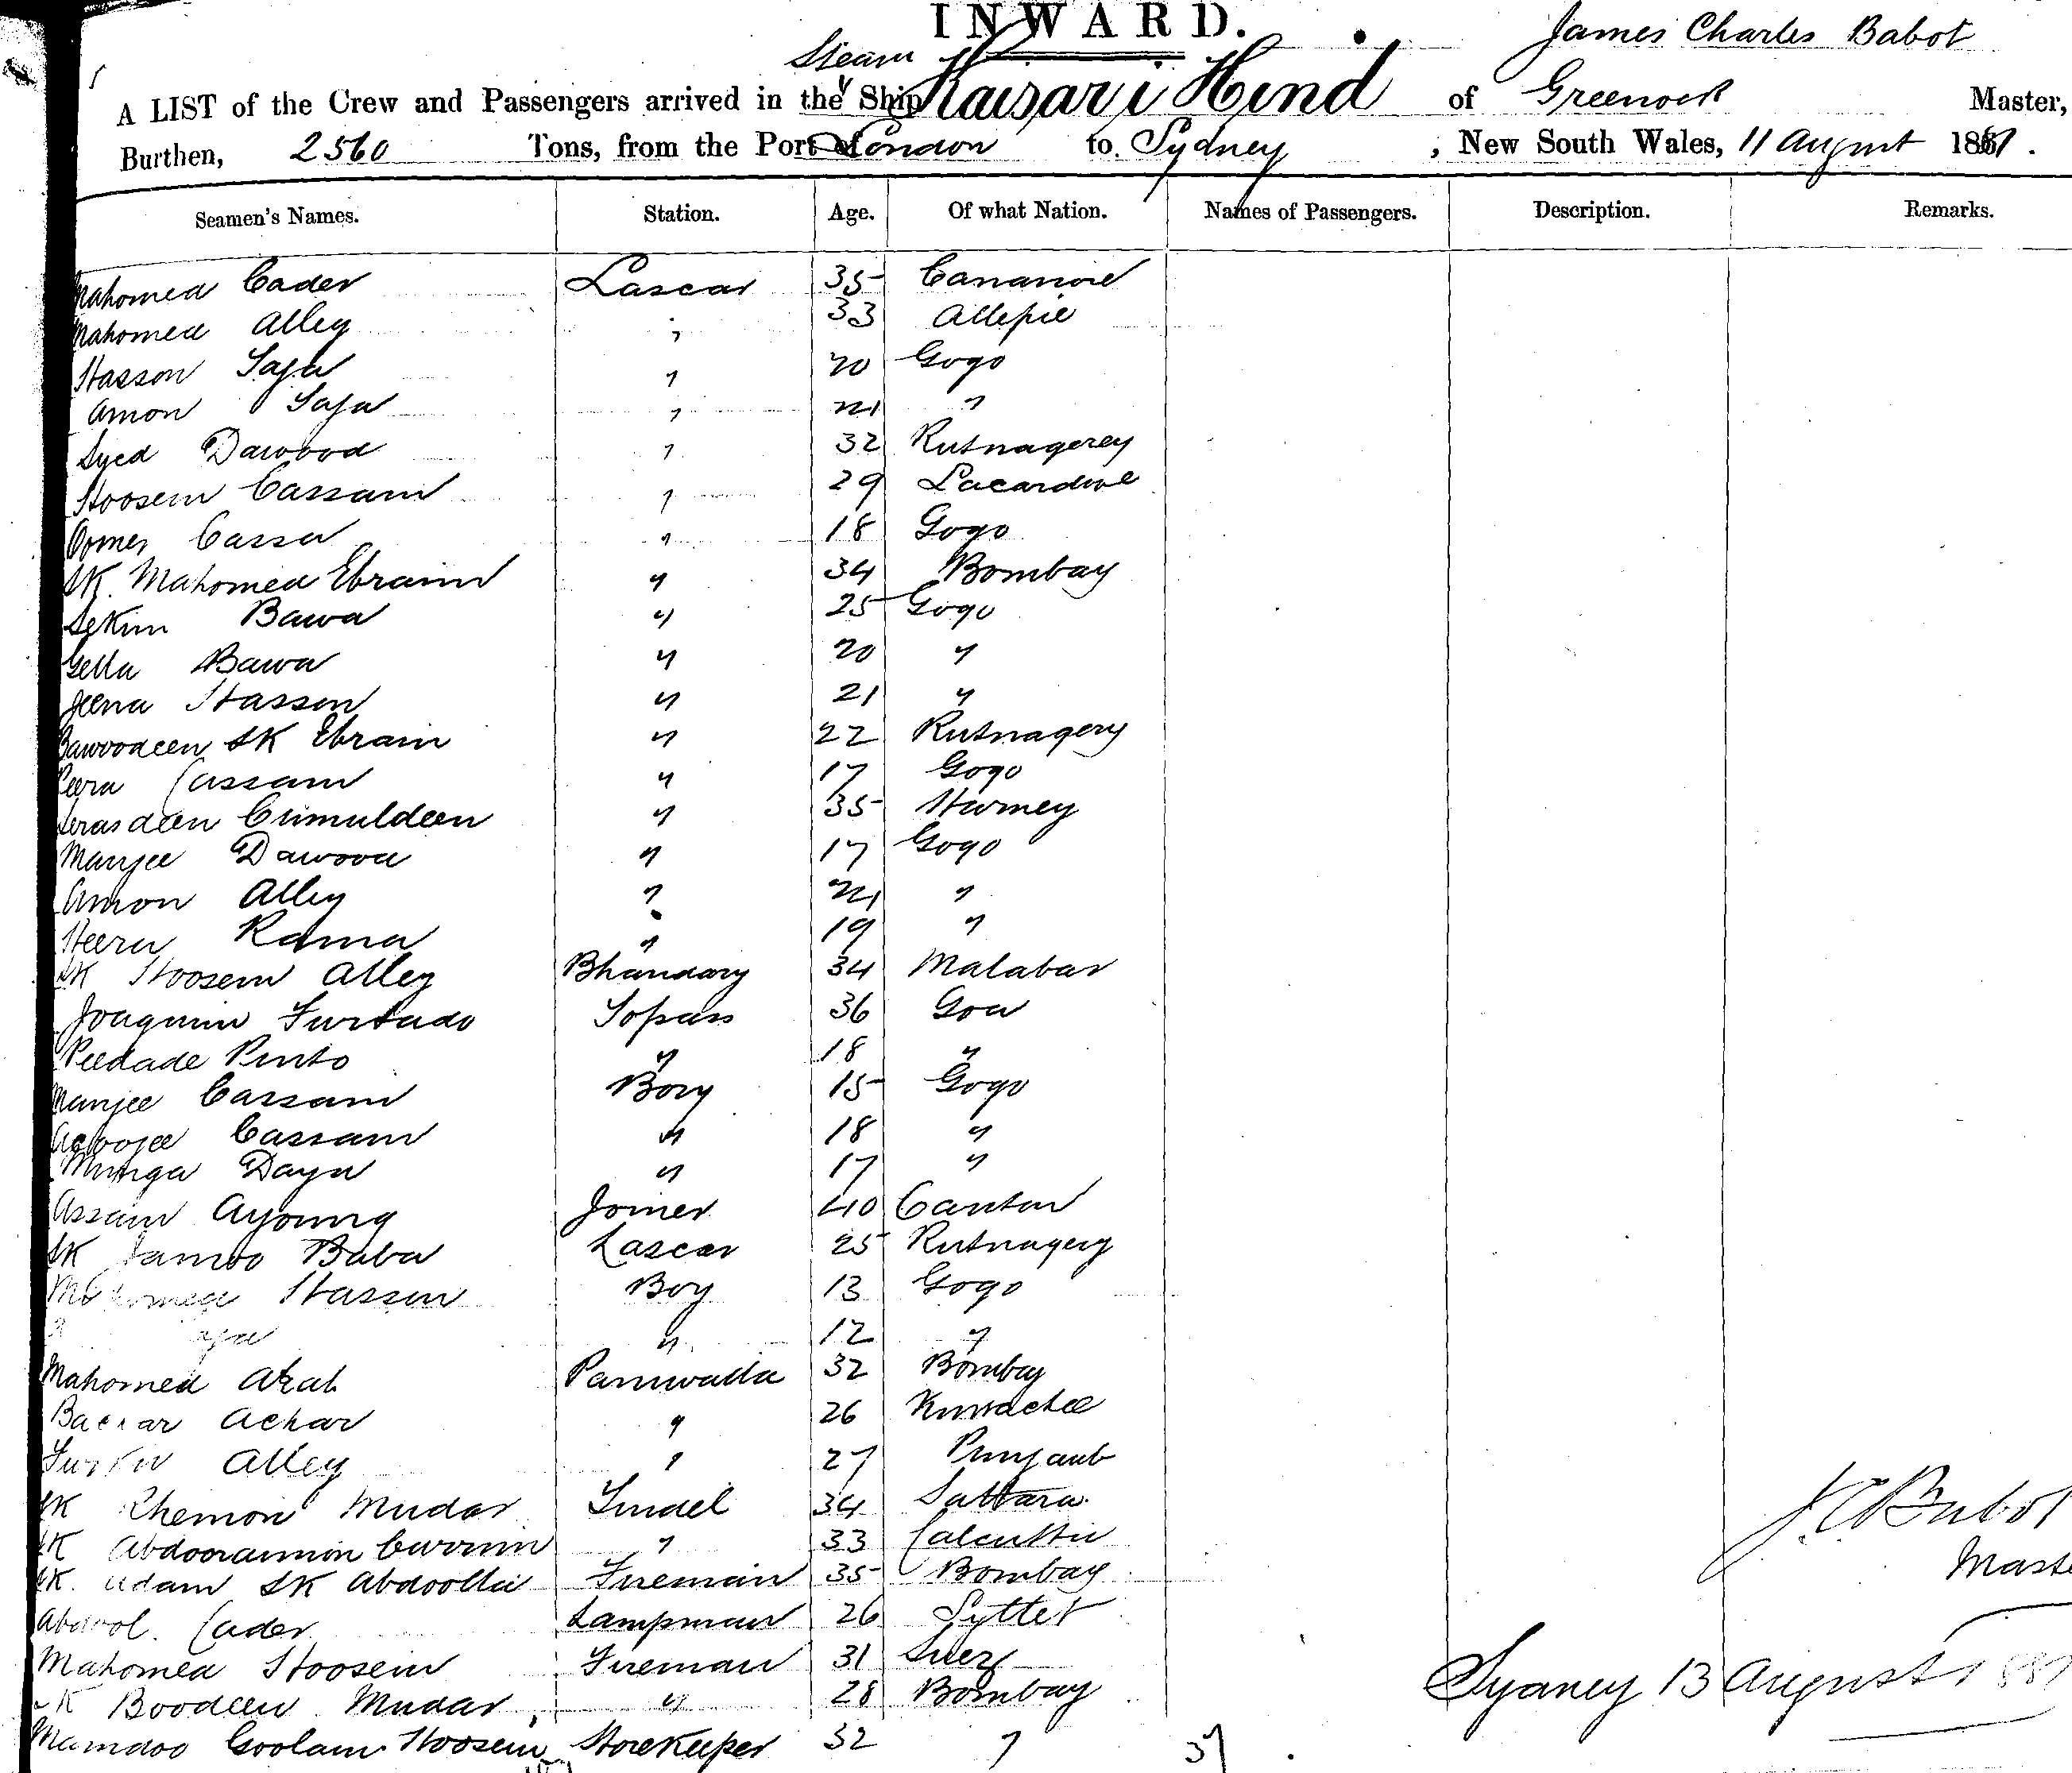 INWARD.
James Charles Babot
A LIST of the Crew and Passengers arrived in the Steam Ship Kaisar i Hind of Greenock Master,
Burthen, 2560 Tons, from the Port of London to Sydney, New South Wales, 11 August 1881.
Seamen's Names. Station. Age. Of what Nation. Names of Passengers. Description. Remarks.
Mahomed Cader Lascar 35 Cananore
Mahomed Alley " 33 Allepie
Hasson " 20 Gogo
Amon " 21 "
Syed Dawood " 32 Rutnagerey
Hoosein Cassam " 29 Lacardive
Oomer Cassa " 18 Gogo
SK. Mahomed Ebraim " 34 Bombay
Sekim Bawa " 25 Gogo
Gella Bawa " 20 "
Jeena Hasson " 21 "
Bawoodeen SK Ebraim " 22 Rutnagery
Peera Cassam " 17 Gogo
Serasdeen Cumuldeen " 35 Hurney
Manjee Dawood " 17 Gogo
Amon Alley " 21 "
Heera Rama " 19 "
SK Hoosein Alley Bhandary 34 Malabar
Joaquim Furtado Topass 36 Goa
Peedade Pinto " 18 "
Manjee Cassam Boy 15 Gogo
Cassam " 18 "
Munga Daya " 17 "
Assam Ayoung Joiner 40 Canton
SK Baba Lascar 25 Rutnagery
Mahomed Hasson Boy 13 Gogo
" 12 "
Mahomed Akab Paniwalla 32 Bombay
Achar " 26 Kurrachee
Alley " 27 Punjaub
SK Rhemon Mudar Tindel 34 Sattara.
SK Abdooraumon Currim " 33 Calcutta
SK. Adam SK Abdoolla Fireman 35 Bombay
Abdool. Cader Lampman 26 Syttet
Mahomed Hoosein Fireman 31 Suez
SK Boodeen Mudar " 28 Bombay
Mamdoo Goolam Hoosein Storekeeper 32 "
37
J C Babot
Master
Sydney 13 August 1881